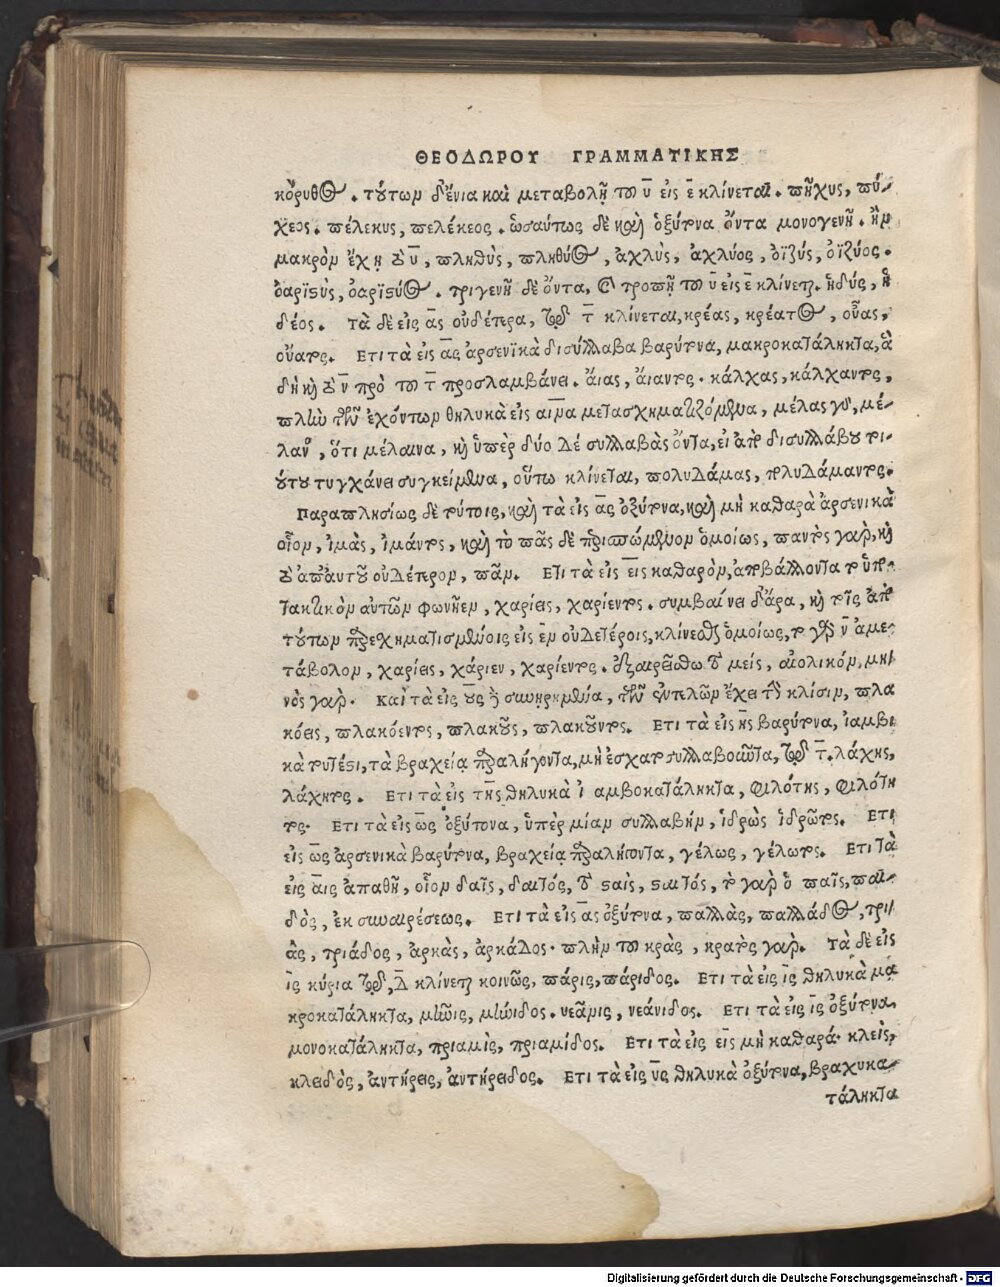 ΘΕΟΔΩΡΟΥ ΓΡΑΜΜΑΤΙΚΗΣ
κόρυθος. τούτων δ' ἔνια καὶ μεταβολῇ τοῦ υ̅ εἰς ε̅ κλίνεται. πῆχυς, πή-
χεος. πέλεκυς, πελέκεος. ὡσαύτως δὲ καὶ ὀξύτονα ὄντα μονογενῆ. ἢν
μακρὸν ἔχῃ τὸ υ̅, πληθὺς, πληθύος, ἀχλὺς, ἀχλύος, ὀϊζύς, ὀϊζύος.
ὀαριστὺς, ὀαριστύος. τριγενῆ δὲ ὄντα, καὶ τροπῇ τοῦ υ̅ εἰς ε̅ κλίνεται. ἡδύς, ἡ
δέος. τὰ δὲ εἰς α̅ς οὐδέτερα, διὰ τοῦ τ̅ κλίνεται, κρέας, κρέατος, οὖας,
οὔατος. Ετι τὰ εἰς α̅ς ἀρσενικὰ δισύλλαβα βαρύτονα, μακροκατάληκτα, ἃ
δὴ καὶ τὸ ν̅ πρὸ τοῦ τ̅ προσλαμβάνει. αἴας, αἴαντος. κάλχας, κάλχαντος,
πλὴν τῶν ἐχόντων θηλυκὰ εἰς αινα μετασχηματιζόμενα, μέλας γὰρ, μέ-
λανος, ὅτι μέλαινα, καὶ ὑπὲρ δύο δὲ συλλαβὰς ὄντα, εἰ ἀπὸ δισυλλάβου τοι-
ούτου τυγχάνει συγκείμενα, οὕτω κλίνεται, πολυδάμας, πολυδάμαντος.
Παραπλησίως δὲ τούτοις, καὶ τὰ εἰς α̅ς ὀξύτονα, καὶ μὴ καθαρὰ ἀρσενικὰ
οἷον, ἱμὰς, ἱμάντος, καὶ τὸ πᾶς δὲ περισπώμενον ὁμοίως, παντὸς γὰρ, καὶ
τὸ ἀπ' αὐτοῦ οὐδέτερον, πᾶν. Ετι τὰ εἰς ει̅ς καθαρὸν, ἀποβάλλοντα τὸ ὑπο-
τακτικὸν αὐτῶν φωνῆεν, χαρίεις, χαρίεντος. συμβαίνει δ' ἄρα, καὶ τοῖς ἀπὸ
τούτων παρεσχηματισμένοις εἰς ε̅ν οὐδετέροις, κλίνεσθαι ὁμοίως, τὸ γὰρ ν̅ ἀμε-
τάβολον, χαρίεις, χάριεν, χαρίεντος. ἐξαιρείσθω τὸ μείς, αἰολικόν, μη-
νὸς γὰρ. Καὶ τὰ εἰς ου̅ς συνηρημένα, τῶν ἐντελῶν ἔχει τὴν κλίσιν, πλα
κόεις, πλακόεντος, πλακοῦς, πλακοῦντος. Ετι τὰ εἰς η̅ς βαρύτονα, ἰαμβι
κὰ τουτέστι, τὰ βραχείᾳ παραλήγοντα, μὴ ἐσχατοσυλλαβοῦντα, διὰ τοῦ τ̅. λάχης,
λάχητος. Ετι τὰ εἰς τη̅ς θηλυκὰ ἰαμβοκατάληκτα, φιλότης, φιλότη
τος. Ετι τὰ εἰς ω̅ς ὀξύτονα, ὑπὲρ μίαν συλλαβὴν, ἱδρὼς ἱδρῶτος. Ετι
εἰς ω̅ς ἀρσενικὰ βαρύτονα, βραχείᾳ παραλήγοντα, γέλως, γέλωτος. Ετι τὰ
εἰς αι̅ς ἀπαθῆ, οἷον δαῒς, δαιτός, τὸ σταὶς, σταιτός, τὸ γὰρ ὁ παῖς, παι-
δὸς, ἐκ συναιρέσεως. Ετι τὰ εἰς α̅ς ὀξύτονα, παλλὰς, παλλάδος, τρι-
ὰς, τριάδος, ἀρκὰς, ἀρκάδος. πλὴν τοῦ κρὰς, κρατὸς γὰρ. Τὰ δὲ εἰς
ι̅ς κύρια διὰ τοῦ δ̅ κλίνεται κοινῶς, πάρις, πάριδος. Ετι τὰ εἰς ι̅ς θηλυκὰ μα
κροκατάληκτα, μῆνις, μήνιδος. νεᾶνις, νεάνιδος. Ετι τὰ εἰς ι̅ς ὀξύτονα
μονοκατάληκτα, πριαμὶς, πριαμίδος. Ετι τὰ εἰς ει̅ς μὴ καθαρά. κλεὶς,
κλειδὸς, ἀντήρεις, ἀντήρειδος. Ετι τὰ εἰς υ̅ς θηλυκὰ ὀξύτονα, βραχυκα-
τάληκτα
Digitalisierung gefördert durch die Deutsche Forschungsgemeinschaft - DFG